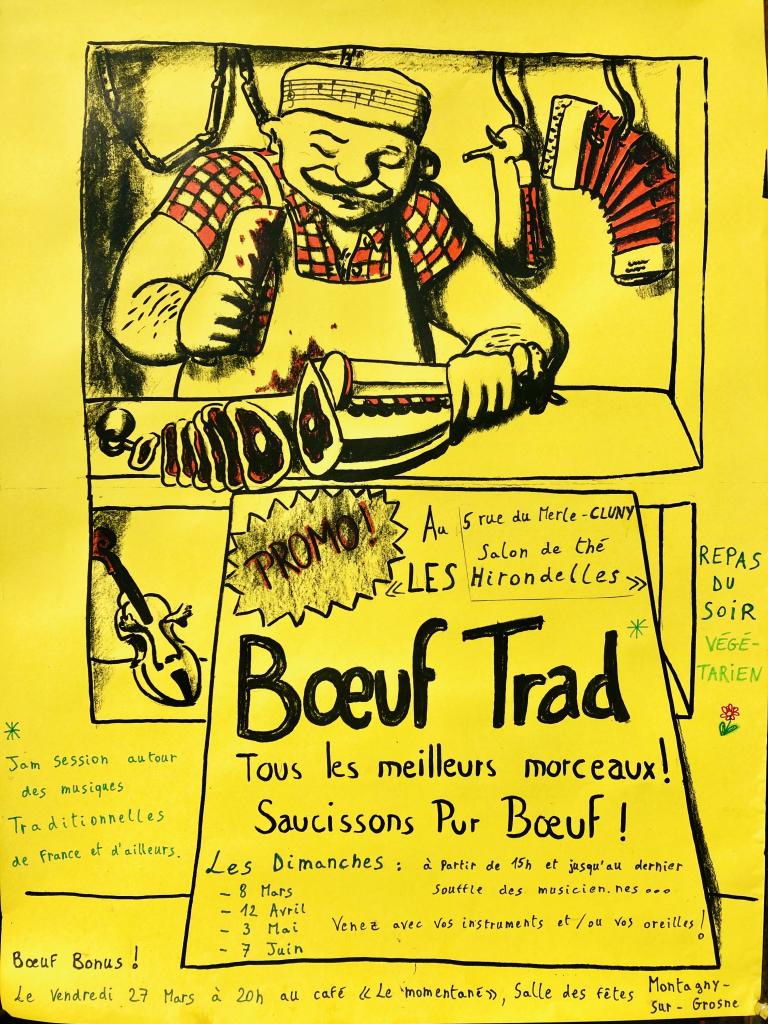 PROMO!
Au 5 rue du Merle - CLUNY
Salon de thé
« LES Hirondelles »
Bœuf Trad *
Tous les meilleurs morceaux!
Saucissons Pur Bœuf !
Les Dimanches : à partir de 15h et jusqu'au dernier
souffle des musicien.nes...
- 8 Mars
- 12 Avril
- 3 Mai
- 7 Juin
Venez avec vos instruments et/ou vos oreilles!
REPAS
DU
SOIR
VÉGÉ-
TARIEN
*
Jam session autour
des musiques
Traditionnelles
de France et d'ailleurs.
Bœuf Bonus !
Le Vendredi 27 Mars à 20h au café «Le momentané», Salle des fêtes Montagny-
sur-Grosne